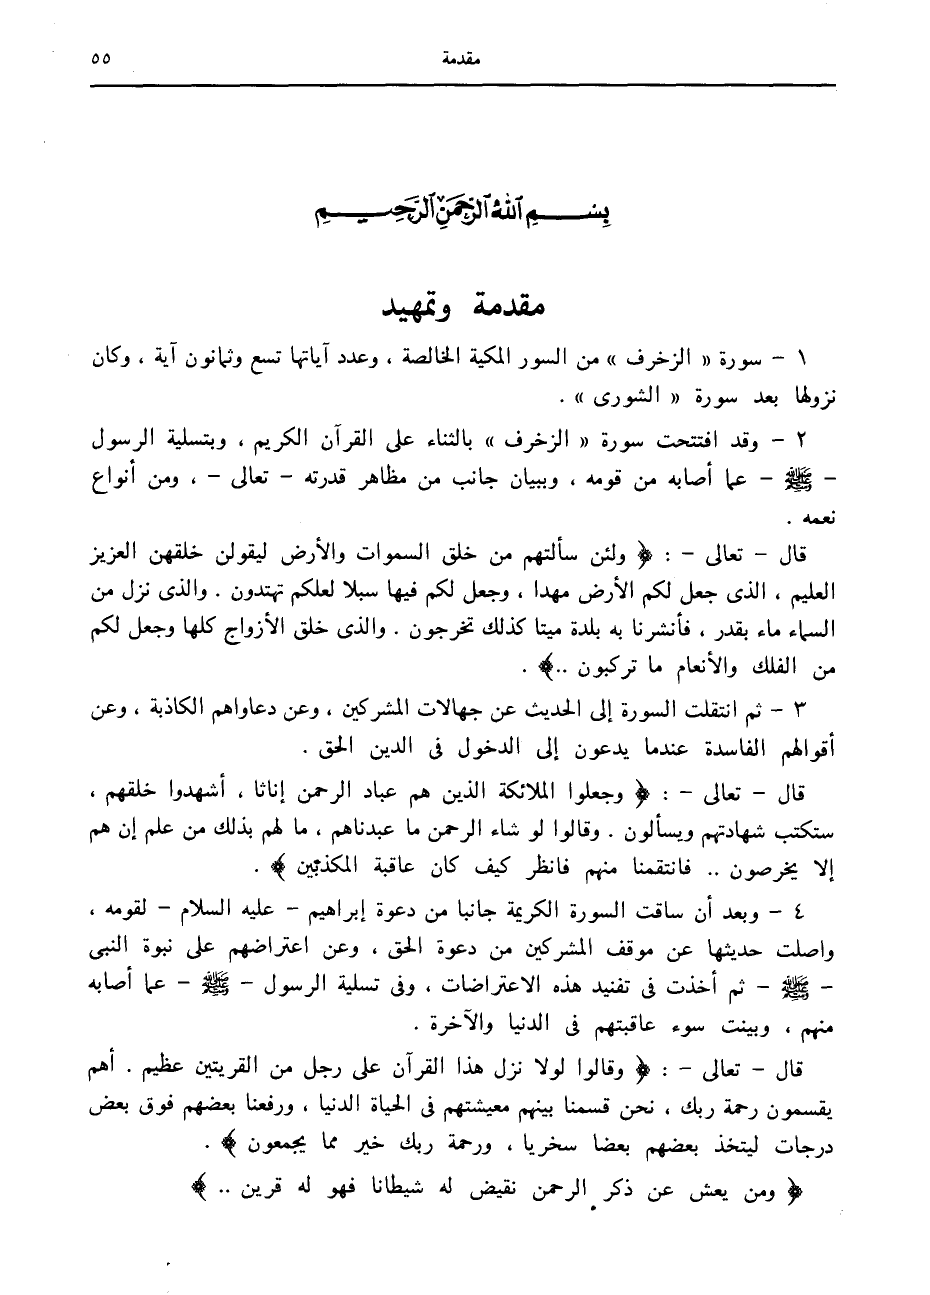 مقدمة ٥٥
بِسْمِ ٱللَّهِ ٱلرَّحْمَٰنِ ٱلرَّحِيمِ
مقدمة وتمهيد
١ – سورة « الزخرف » من السور المكية الخالصة ، وعدد آياتها تسع وثمانون آية ، وكان
نزولها بعد سورة « الشورى » .
٢ – وقد افتتحت سورة « الزخرف » بالثناء على القرآن الكريم ، وبتسلية الرسول
– ﷺ – عما أصابه من قومه ، وببيان جانب من مظاهر قدرته – تعالى – ، ومن أنواع
نعمه .
قال – تعالى – : ﴿ ولئن سألتهم من خلق السموات والأرض ليقولن خلقهن العزيز
العليم ، الذى جعل لكم الأرض مهدا ، وجعل لكم فيها سبلا لعلكم تهتدون . والذى نزل من
السماء ماء بقدر ، فأنشرنا به بلدة ميتا كذلك تخرجون . والذى خلق الأزواج كلها وجعل لكم
من الفلك والأنعام ما تركبون ..﴾ .
٣ – ثم انتقلت السورة إلى الحديث عن جهالات المشركين ، وعن دعاواهم الكاذبة ، وعن
أقوالهم الفاسدة عندما يدعون إلى الدخول فى الدين الحق .
قال – تعالى – : ﴿ وجعلوا الملائكة الذين هم عباد الرحمن إناثا ، أشهدوا خلقهم ،
ستكتب شهادتهم ويسألون . وقالوا لو شاء الرحمن ما عبدناهم ، ما لهم بذلك من علم إن هم
إلا يخرصون .. فانتقمنا منهم فانظر كيف كان عاقبة المكذبين ﴾ .
٤ – وبعد أن ساقت السورة الكريمة جانبا من دعوة إبراهيم – عليه السلام – لقومه ،
واصلت حديثها عن موقف المشركين من دعوة الحق ، وعن اعتراضهم على نبوة النبى
– ﷺ – ثم أخذت فى تفنيد هذه الاعتراضات ، وفى تسلية الرسول – ﷺ – عما أصابه
منهم ، وبينت سوء عاقبتهم فى الدنيا والآخرة .
قال – تعالى – : ﴿ وقالوا لولا نزل هذا القرآن على رجل من القريتين عظيم . أهم
يقسمون رحمة ربك ، نحن قسمنا بينهم معيشتهم فى الحياة الدنيا ، ورفعنا بعضهم فوق بعض
درجات ليتخذ بعضهم بعضا سخريا ، ورحمة ربك خير مما يجمعون ﴾ .
﴿ ومن يعش عن ذكر الرحمن نقيض له شيطانا فهو له قرين .. ﴾